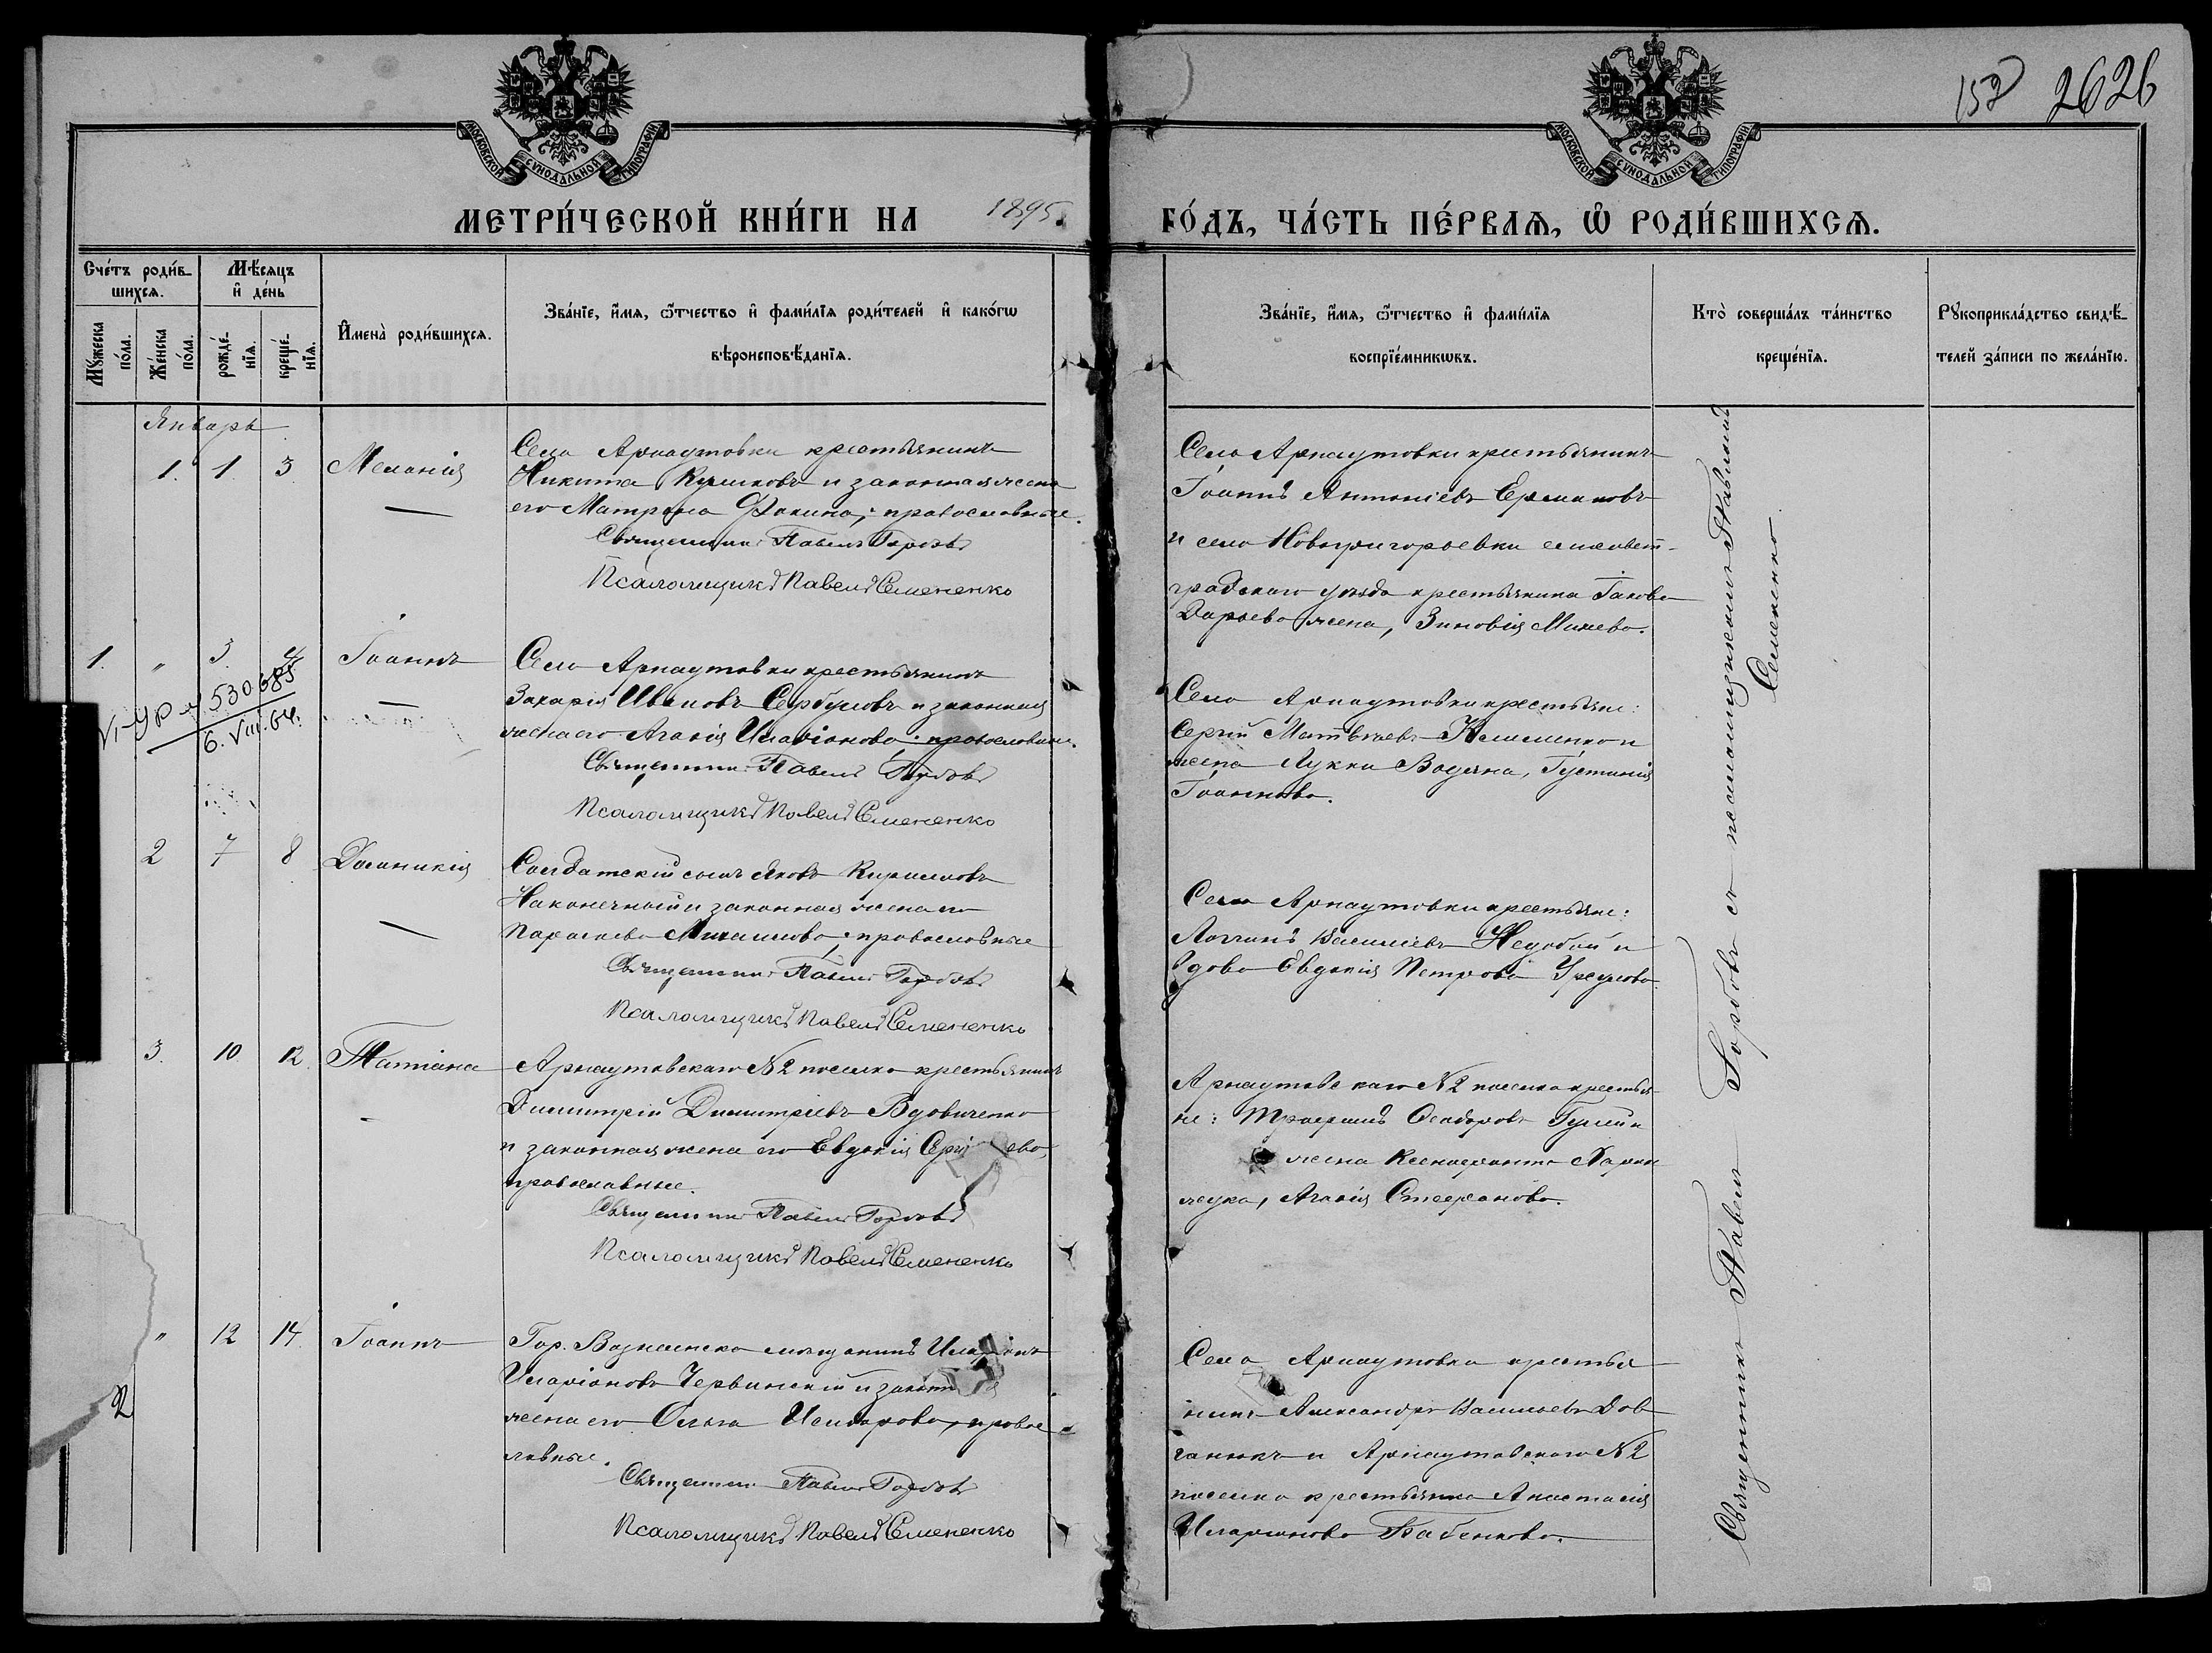 152 2626
МОСКОВСКОЙ СѴНОДАЛЬНОЙ ТИПОГРАФІИ
МОСКОВСКОЙ СѴНОДАЛЬНОЙ ТИПОГРАФІИ
МЕТРИ́ЧЕСКОЙ КНИ́ГИ НА 1895.
ГО́ДЪ, ЧА́СТЬ ПЕ́РВАѦ, Ѡ҆ РОДИ́ВШИХСѦ.
Сче́тъ роди́в-
шихсѧ.
Мѣ́сяцъ
и҆ де́нь
Мꙋ́жеска
по́ла.
Же́нска
по́ла.
рожде́-
нїѧ.
креще́-
нїѧ.
И҆мена̀ роди́вшихсѧ.
Зва́нїе, и҆́мѧ, ѻ҆́тчество и҆ фами́лїѧ роди́телей и҆ како́гѡ
вѣроисповѣ́данїѧ.
Зва́нїе, и҆́мѧ, ѻ҆́тчество и҆ фами́лїѧ
воспрїе́мникѡвъ.
Кто̀ соверша́лъ та́инство
креще́нїѧ.
Рꙋкоприкла́дство свидѣ́-
телей за́писи по жела́нїю.
Январь
1. 1 3 Меланія
Села Арнаутовки крестьянинъ
Никита Куликовъ и законная жена
его Матрона Фокина, православные.
Священникъ Павелъ Горбовъ
Псаломщикъ Павелъ Семененко
Село Арнаутовки крестьянинъ
Іоаннъ Антоніевъ Ермаковъ
и села Новогригорьевки елисавет-
градскаго уѣзда крестьянина Іакова
Дарьева жена, Зиновія Михева.
1. " 3 4 Іоаннъ
530685
6. VIII. 64.
Села Арнаутовки крестьянинъ
Захарія Ивановъ Сербуловъ и законная
жена его Агафія Иларіонова, православные.
Священникъ Павелъ Горбовъ
Псаломщикъ Павелъ Семененко
Села Арнаутовки крестьяне:
Сергій Матвѣевъ Клименко и
жена Лукки Водяна, Іустинія
Іоаннова.
2 7 8 Домникія
Солдатскій сынъ Яковъ Кирилловъ
Наконечный и законная жена его
Параскева Михаилова, православные
Священникъ Павелъ Горбовъ
Псаломщикъ Павелъ Семененко
Села Арнаутовки крестьяне:
Логгинъ Василіевъ Недобой и
вдова Евдокія Петрова Урсулова
3. 10 12. Татіана
Арнаутовскаго №2 поселка крестьянинъ
Димитрій Димитріевъ Вдовиченко
и законная жена его Евдокія Сергіева,
православные.
Священникъ Павелъ Горбовъ
Псаломщикъ Павелъ Семененко
Арнаутовскаго №2 поселка крестья-
не: Трофимъ Ѳеодоровъ Гулый и
жена Ксенофонта
Агафія Стефанова.
2 " 12 14. Іоаннъ
Гор. Вознесенска мѣщанинъ Иларіонъ
Иларіоновъ Червинскій и законная
жена его Ольга Исидорова, правос-
лавные.
Священникъ Павелъ Горбовъ
Псаломщикъ Павелъ Семененко
Села Арнаутовки крестья
нинъ Александръ Васильевъ Дов
ганюкъ и Арнаутовскаго №2
поселка крестьянка Анастасія
Иларіонова Бабенкова.
Священникъ Павелъ Горбовъ съ псаломщикомъ Павломъ
Семененко